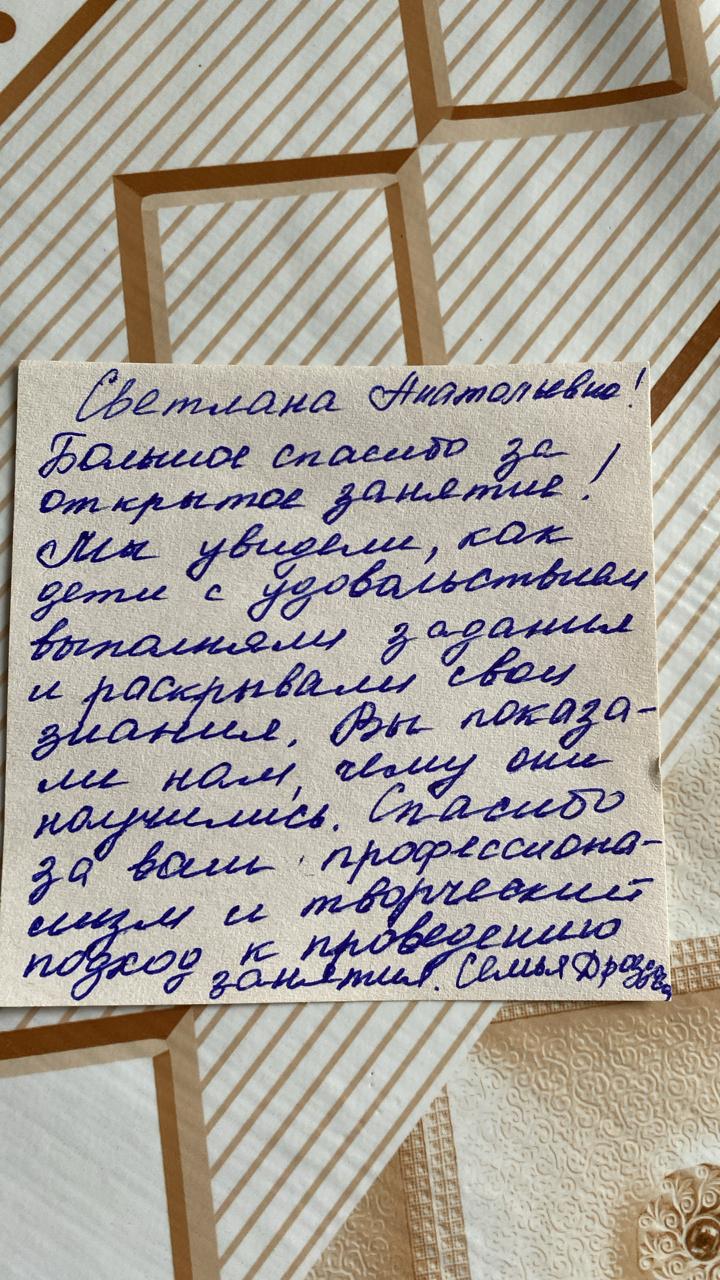 Светлана Анатольевна!
Большое спасибо за
открытое занятие!
Мы увидели, как
дети с удовольствием
выполняли задания
и раскрывали свои
знания. Вы показа-
ли нам, чему они
научились. Спасибо
за ваш профессиона-
лизм и творческий
подход к проведению
занятия. Семья